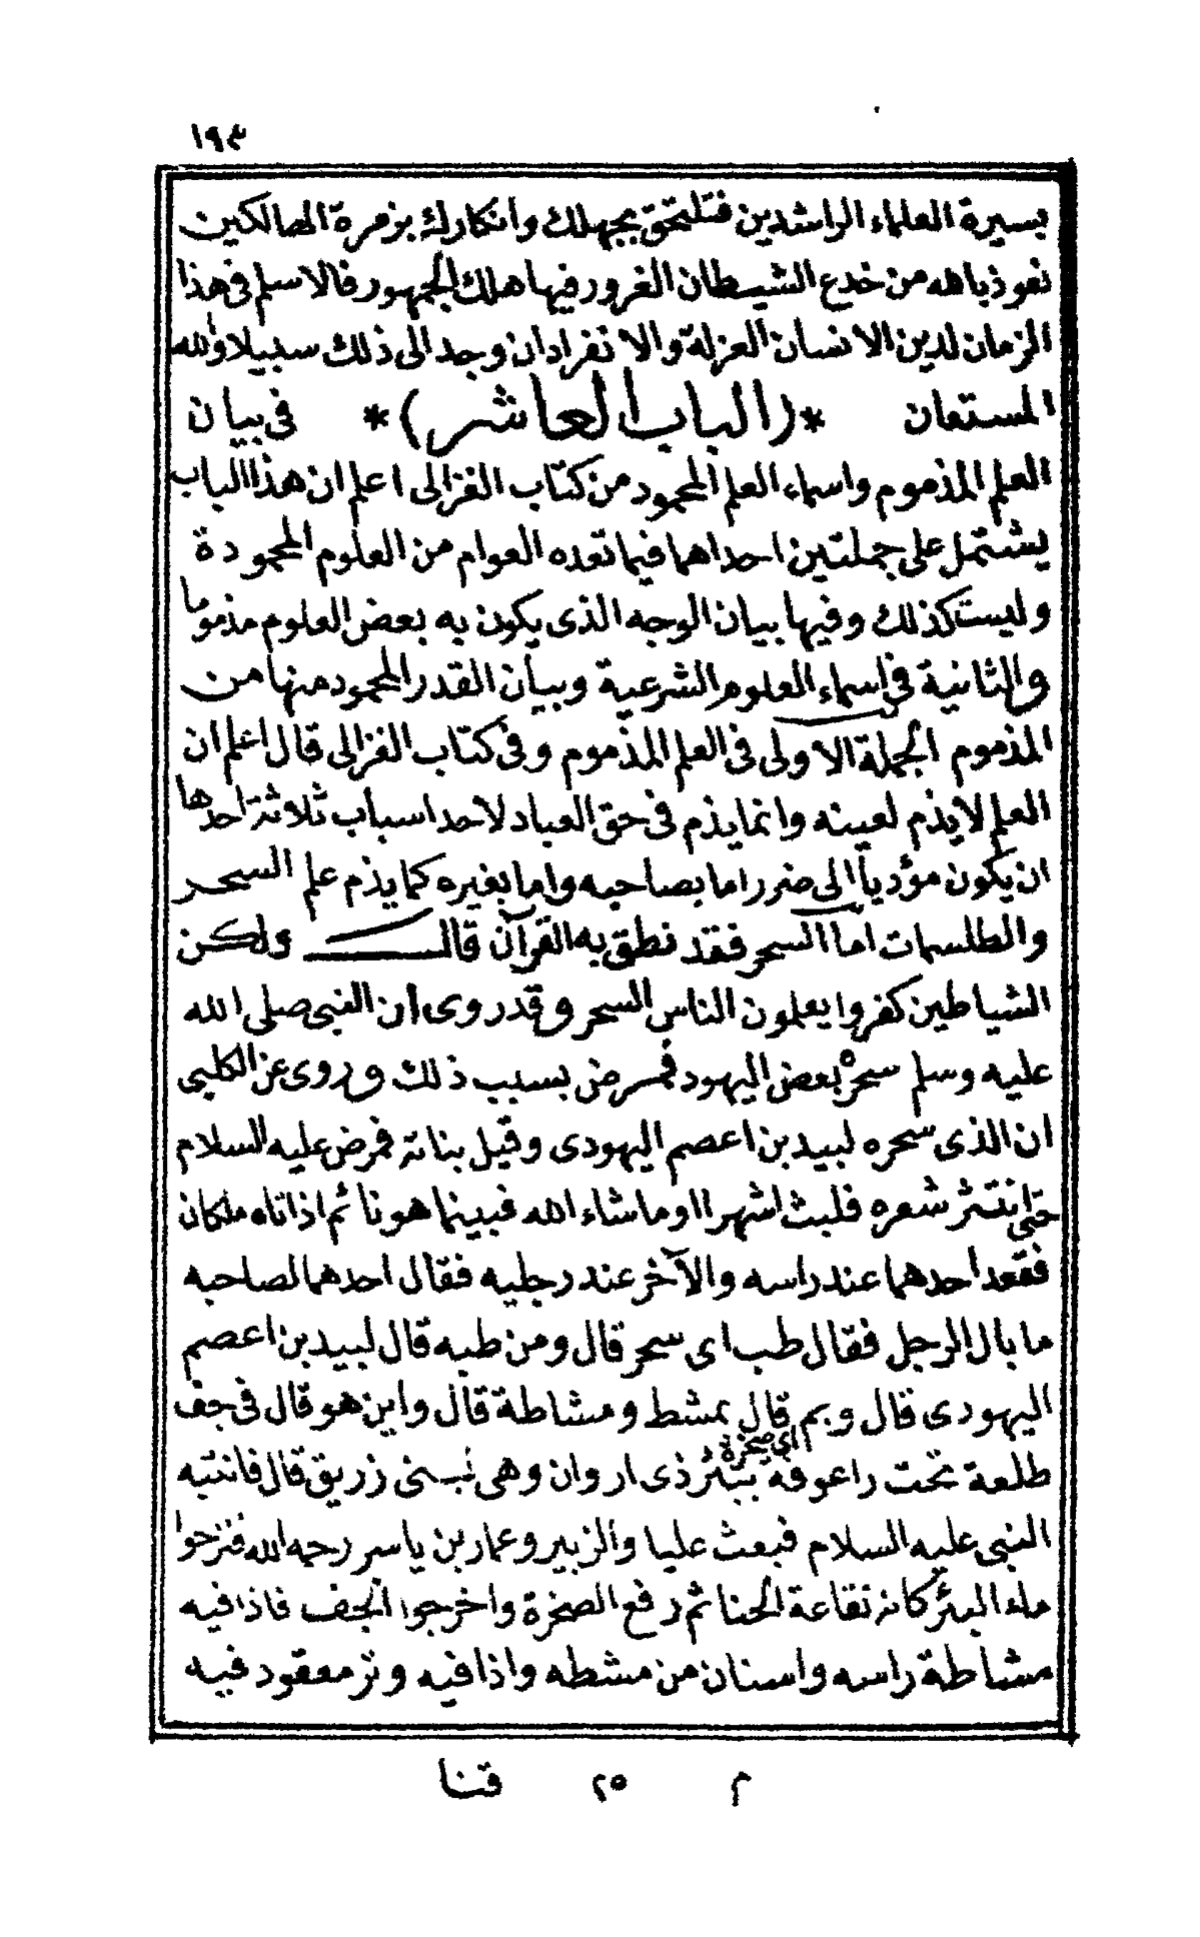 ١٩٣
بسيرة العلماء الراشدين فتلتحق بجهلك وانكارك بزمرة الهالكين
نعوذ بالله من خدع الشيطان الغرور فيها هلك الجمهور فالاسلم فى هذا
الزمان لدين الانسان العزلة والانفراد ان وجد الى ذلك سبيلا والله
المستعان *(الباب العاشر)* فى بيان
العلم المذموم واسماء العلم المحمود من كتاب الغزالى اعلم ان هذا الباب
يشتمل على جملتين احداهما فيما تعده العوام من العلوم المحمودة
وليست كذلك وفيها بيان الوجه الذى يكون به بعض العلوم مذموما
والثانية فى اسماء العلوم الشرعية وبيان القدر المحمود منها من
المذموم الجملة الاولى فى العلم المذموم وفى كتاب الغزالى قال اعلم ان
العلم لايذم لعينه وانما يذم فى حق العباد لاحد اسباب ثلاثة احدها
ان يكون مؤديا الى ضرر اما بصاحبه واما بغيره كما يذم علم السحر
والطلسمات اما السحر فقد نطق به القرآن قال ولكن
الشياطين كفروا يعلمون الناس السحر وقد روى ان النبى صلى الله
عليه وسلم سحره بعض اليهود فمرض بسبب ذلك وروى عن الكلبى
ان الذى سحره لبيد بن اعصم اليهودى وقيل بناته فمرض عليه السلام
حتى انتثر شعره فلبث اشهرا او ما شاء الله فبينما هو نائم اذ اتاه ملكان
فقعد احدهما عند راسه والآخر عند رجليه فقال احدهما لصاحبه
ما بال الرجل فقال طب اى سحر قال ومن طبه قال لبيد بن اعصم
اليهودى قال وبم قال بمشط ومشاطة قال واين هو قال فى جف
اى صخرة
طلعة تحت راعوفة ببئر ذى اروان وهى لبنى زريق قال فانتبه
النبى عليه السلام فبعث عليا والزبير وعمار بن ياسر رحمه الله فنزحوا
ماء البئر كانه نقاعة الحنا ثم رفع الصخرة واخرجوا الجف فاذا فيه
مشاطة راسه واسنان من مشطه واذا فيه وتر معقود فيه
م ٢٥ قنا